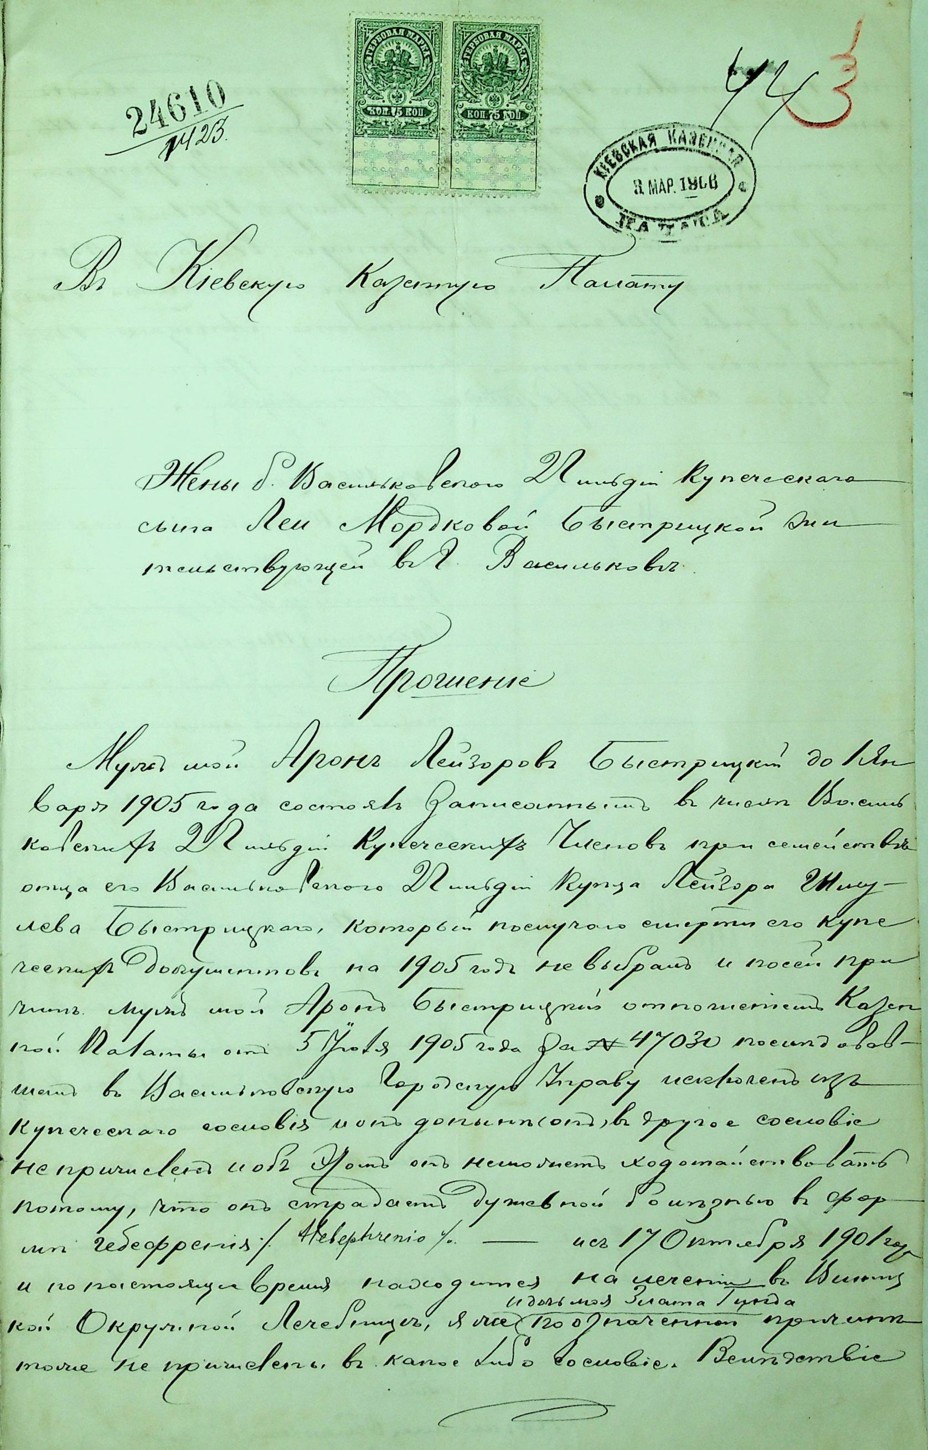 24610
1423.
ГЕРБОВАЯ МАРКА ГЕРБОВАЯ МАРКА
КОП. 75 КОП КОП. 75 КОП
443
КІЕВСКАЯ КАЗЕННАЯ
3. МАР. 1906
ПАЛАТА
Въ Кіевскую Казенную Палату
Жены б. Васильковскаго 2 Гильдіи купеческаго
сына Леи Мордковой Быстрицкой жи
тельствующей въ г. Васильковѣ.
Прошеніе
Мужъ мой Аронъ Лейзоровъ Быстрицкій до 1 Ян
варя 1905 года состоялъ записаннымъ въ числѣ Василь
ковскихъ 2 Гильдіи Купеческихъ Членовъ при семействѣ
отца его Васильковскаго 2 Гильдіи Купца Лейзора Шму-
лева Быстрицкаго, который по случаю смерти его купе
ческихъ документовъ на 1905 годъ не выбралъ и по сей при
чинѣ мужъ мой Аронъ Быстрицкій отношеніемъ Казен
ной Палаты отъ 5 Іюля 1905 года за № 47030 послѣдовав-
шемъ въ Васильковскую Городскую Управу исключенъ изъ
купеческаго сословія и онъ донынѣ въ другое сословіе
не причисленъ и объ этомъ онъ не можетъ ходотайствовать
потому, что онъ страдаетъ душевной болѣзнью въ фор
мѣ гебефренія /. Hebephrenia /. — и съ 17 Октября 1901 года
и по настоящее время находится на леченіи въ Винниц
и дочь моя Злата Гинда
кой Окружной Лечебницѣ, я же по означенной причинѣ
тоже не причислены въ какое либо сословіе. Вслѣдствіе